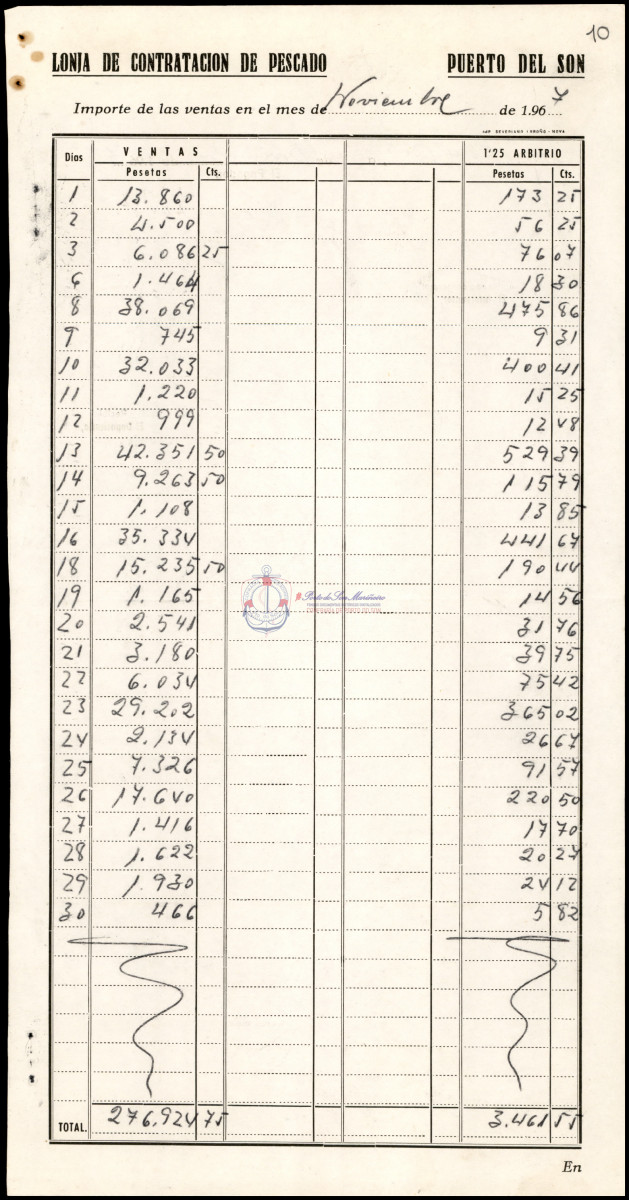 10
LONJA DE CONTRATACION DE PESCADO PUERTO DEL SON
Importe de las ventas en el mes de Noviembre de 1.967
Días VENTAS 1'25 ARBITRIO
Pesetas Cts. Pesetas Cts.
1 13.860 173 25
2 4.500 56 25
3 6.086 25 76 07
6 1.464 18 30
8 38.069 475 86
9 745 9 31
10 32.033 400 41
11 1.220 15 25
12 999 12 48
13 42.351 50 529 39
14 9.263 50 115 79
15 1.108 13 85
16 35.334 441 67
18 15.235 50 190 44
19 1.165 14 56
20 2.541 31 76
21 3.180 39 75
22 6.034 75 42
23 29.202 365 02
24 2.134 26 67
25 7.326 91 57
26 17.640 220 50
27 1.416 17 70
28 1.622 20 27
29 1.930 24 12
30 466 5 82
TOTAL. 276.924 75 3.461 55
En